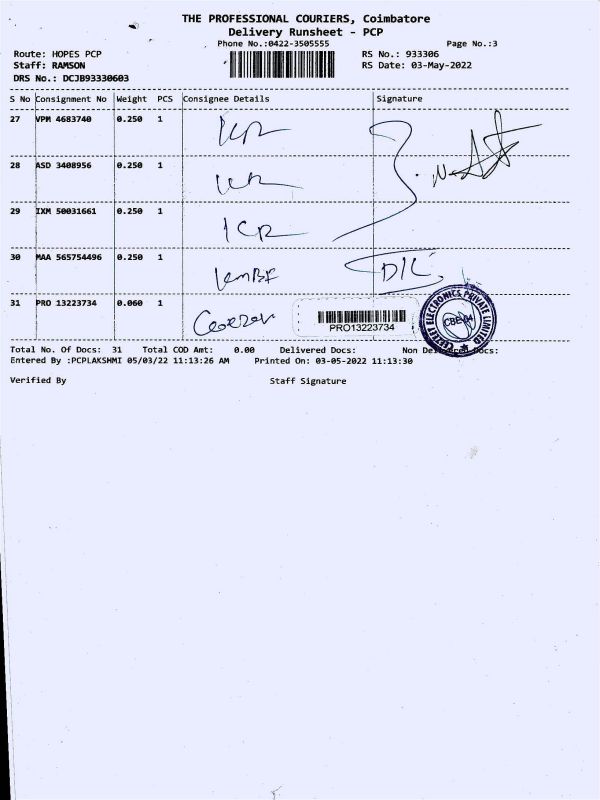 THE PROFESSIONAL COURIERS, Coimbatore
Delivery Runsheet - PCP
Phone No.:0422-3505555 Page No.:3
Route: HOPES PCP RS No.: 933306
Staff: RAMSON RS Date: 03-May-2022
DRS No.: DCJB93330603
S No Consignment No Weight PCS Consignee Details Signature
27 VPM 4683740 0.250 1
28 ASD 3408956 0.250 1
29 IXM 50031661 0.250 1 ICR
30 MAA 565754496 0.250 1
31 PRO 13223734 0.060 1
PRO13223734
ELECTRONICS PRIVATE LIMITED
Total No. Of Docs: 31 Total COD Amt: 0.00 Delivered Docs: Non Delivered Docs:
Entered By :PCPLAKSHMI 05/03/22 11:13:26 AM Printed On: 03-05-2022 11:13:30
Verified By Staff Signature